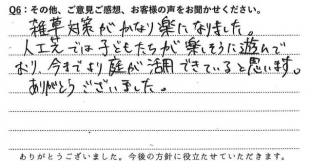 Q6：その他、ご意見ご感想、お客様の声をお聞かせください。
雑草対策がかなり楽になりました。
人工芝では子どもたちが楽しそうに遊んで
おり、今までより庭が活用できていると思います。
ありがとうございました。
ありがとうございました。今後の方針に役立たせていただきます。